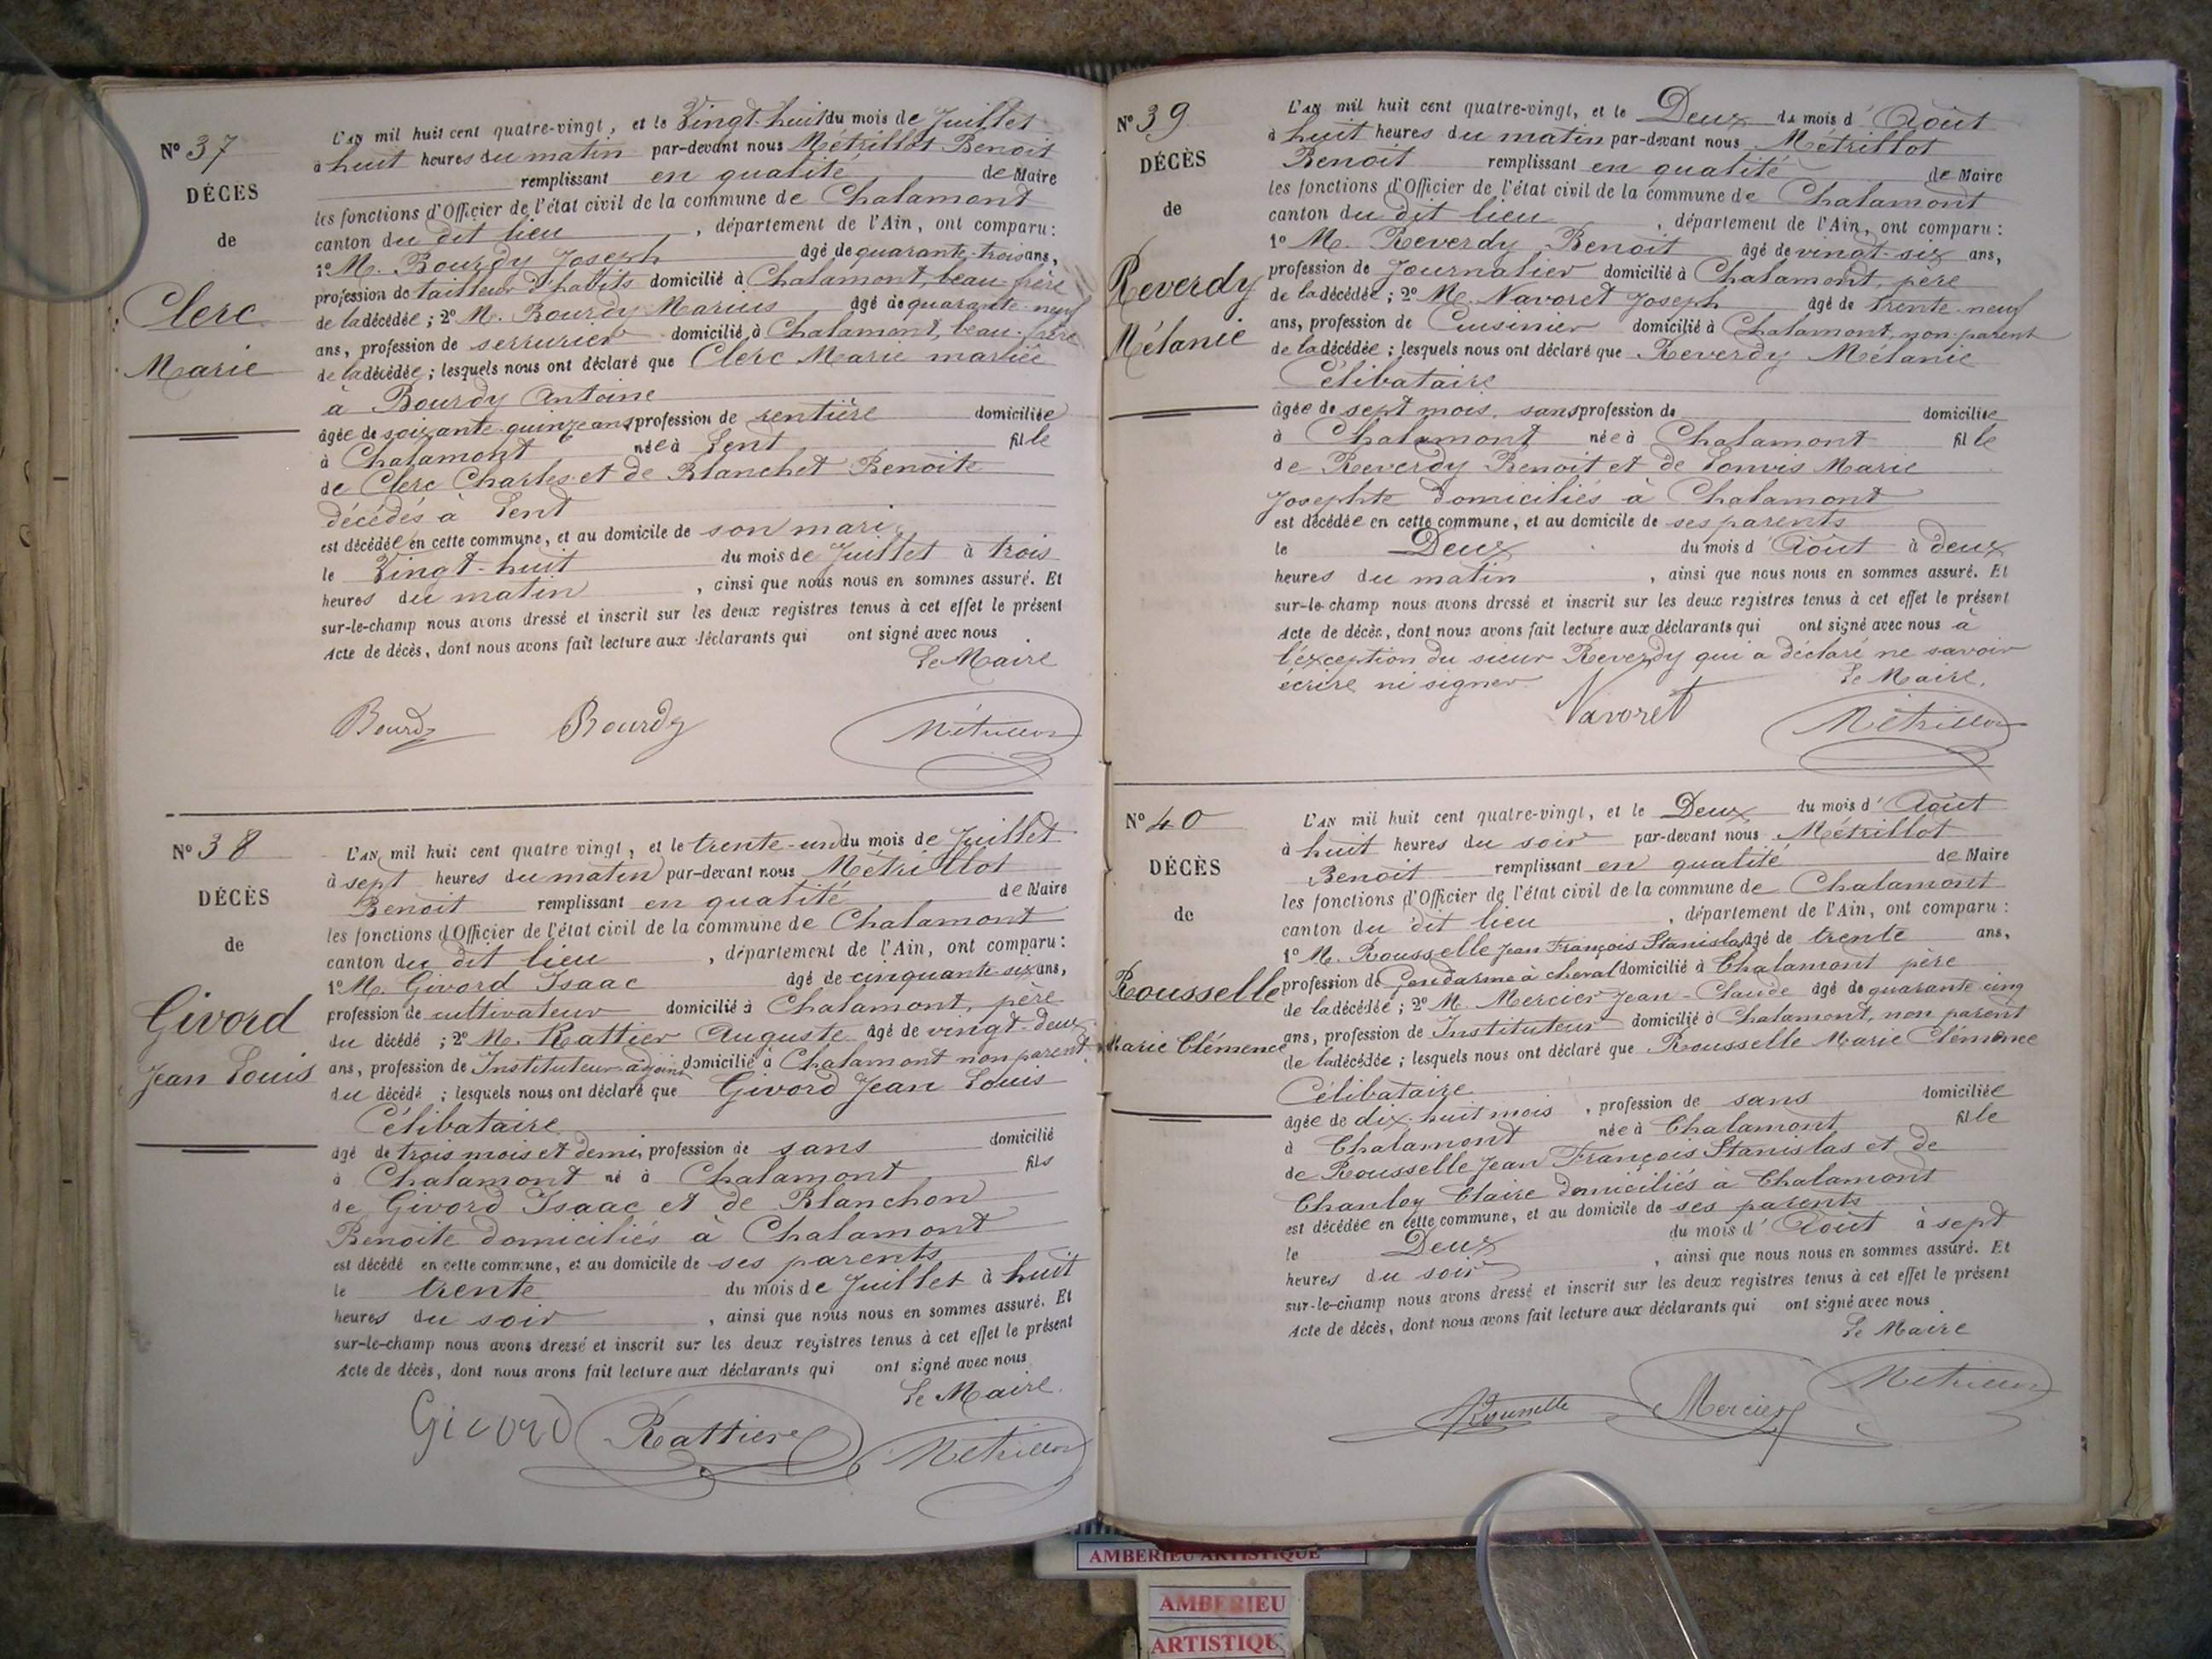 N° 37
DÉCÈS
de
Clerc
Marie
L'AN mil huit cent quatre-vingt, et le Vingt-huit du mois de Juillet
à huit heures du matin par-devant nous Métrillot Benoit
remplissant en qualité de Maire
les fonctions d'Officier de l'état civil de la commune de Chalamont
canton du dit lieu, département de l'Ain, ont comparu:
1° M. Bourdy Joseph âgé de quarante-trois ans,
profession de tailleur d'habits domicilié à Chalamont, beau-frère
de la décédée; 2° M. Bourdy Marius âgé de quarante-neuf
ans, profession de serrurier domicilié à Chalamont, beau-frère
de la décédée; lesquels nous ont déclaré que Clerc Marie mariée
à Bourdy Antoine
âgée de soixante-quinze ans, profession de rentière domiciliée
à Chalamont née à Lent fille
de Clerc Charles et de Blanchet Benoite
décédés à Lent
est décédée en cette commune, et au domicile de son mari,
le Vingt-huit du mois de Juillet à trois
heures du matin, ainsi que nous nous en sommes assuré. Et
sur-le-champ nous avons dressé et inscrit sur les deux registres tenus à cet effet le présent
Acte de décès, dont nous avons fait lecture aux déclarants qui ont signé avec nous.
Le Maire
Bourdy Bourdy Métrillot
N° 38
DÉCÈS
de
Givord
Jean Louis
L'AN mil huit cent quatre vingt, et le trente-un du mois de Juillet
à sept heures du matin par-devant nous Métrillot
Benoit remplissant en qualité de Maire
les fonctions d'Officier de l'état civil de la commune de Chalamont
canton du dit lieu, département de l'Ain, ont comparu:
1° M. Givord Isaac âgé de cinquante-six ans,
profession de cultivateur domicilié à Chalamont, père
du décédé; 2° M. Rattier Auguste âgé de vingt-deux
ans, profession de Instituteur adjoint domicilié à Chalamont non parent
du décédé; lesquels nous ont déclaré que Givord Jean Louis
Célibataire
âgé de trois mois et demi, profession de sans domicilié
à Chalamont né à Chalamont fils
de Givord Isaac et de Blanchon
Benoite domiciliés à Chalamont
est décédé en cette commune, et au domicile de ses parents
le trente du mois de Juillet à huit
heures du soir, ainsi que nous nous en sommes assuré. Et
sur-le-champ nous avons dressé et inscrit sur les deux registres tenus à cet effet le présent
Acte de décès, dont nous avons fait lecture aux déclarants qui ont signé avec nous
Le Maire.
Givord Rattier Métrillot
N° 39
DÉCÈS
de
Reverdy
Mélanie
L'AN mil huit cent quatre-vingt, et le Deux du mois d'Août
à huit heures du matin par-devant nous Métrillot
Benoit remplissant en qualité de Maire
les fonctions d'Officier de l'état civil de la commune de Chalamont
canton du dit lieu, département de l'Ain, ont comparu:
1° M. Reverdy Benoit âgé de vingt-six ans,
profession de Journalier domicilié à Chalamont, père
de la décédée; 2° M. Navoret Joseph âgé de trente-neuf
ans, profession de Cuisinier domicilié à Chalamont, non parent
de la décédée; lesquels nous ont déclaré que Reverdy Mélanie
Célibataire
âgée de sept mois, sans profession de domiciliée
à Chalamont née à Chalamont fille
de Reverdy Benoit et de Marie
Josephte domiciliés à Chalamont
est décédée en cette commune, et au domicile de ses parents
le Deux du mois d'Août à deux
heures du matin, ainsi que nous nous en sommes assuré. Et
sur-le-champ nous avons dressé et inscrit sur les deux registres tenus à cet effet le présent
Acte de décès, dont nous avons fait lecture aux déclarants qui ont signé avec nous à
l'exception du sieur Reverdy qui a déclaré ne savoir
écrire ni signer. Le Maire,
Navoret Métrillot
N° 40
DÉCÈS
de
Rousselle
Marie Clémence
L'AN mil huit cent quatre-vingt, et le Deux du mois d'Août
à huit heures du soir par-devant nous Métrillot
Benoit remplissant en qualité de Maire
les fonctions d'Officier de l'état civil de la commune de Chalamont
canton du dit lieu, département de l'Ain, ont comparu:
1° M. Rousselle Jean François Stanislas âgé de trente ans,
profession de Gendarme à cheval domicilié à Chalamont père
de la décédée; 2° M. Mercier Jean-Claude âgé de quarante cinq
ans, profession de Instituteur domicilié à Chalamont, non parent
de la décédée; lesquels nous ont déclaré que Rousselle Marie Clémence
Célibataire
âgée de dix-huit mois, profession de sans domiciliée
à Chalamont née à Chalamont fille
de Rousselle Jean François Stanislas et de
Chanloy Claire domiciliés à Chalamont
est décédée en cette commune, et au domicile de ses parents
le Deux du mois d'Août à sept
heures du soir, ainsi que nous nous en sommes assuré. Et
sur-le-champ nous avons dressé et inscrit sur les deux registres tenus à cet effet le présent
Acte de décès, dont nous avons fait lecture aux déclarants qui ont signé avec nous.
Le Maire
Rousselle Mercier Métrillot
AMBERIEU ARTISTIQUE
AMBERIEU
ARTISTIQU